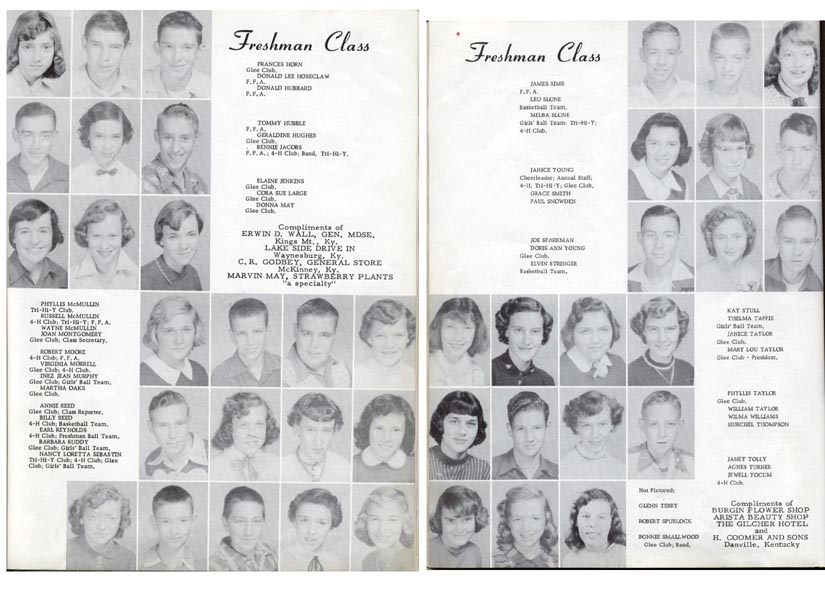 Freshman Class
FRANCES HORN
Glee Club.
DONALD LEE HOSECLAW
F.F.A.
DONALD HUBBARD
F.F.A.
TOMMY HUBBLE
F.F.A.
GERALDINE HUGHES
Glee Club.
BENNIE JACOBS
F.F.A.; 4-H Club; Band, Tri-Hi-Y.
ELAINE JENKINS
Glee Club.
CORA SUE LARGE
Glee Club.
DONNA MAY
Glee Club.
Compliments of
ERWIN D. WALL, GEN. MDSE.
Kings Mt., Ky.
LAKE SIDE DRIVE IN
Waynesburg, Ky.
C.R. GODBEY, GENERAL STORE
McKinney, Ky.
MARVIN MAY, STRAWBERRY PLANTS
"a specialty"
PHYLLIS McMULLIN
Tri-Hi-Y Club.
RUSSELL McMULLIN
4-H Club; Tri-Hi-Y; F.F.A.
WAYNE McMULLIN
JOAN MONTGOMERY
Glee Club; Class Secretary.
ROBERT MOORE
4-H Club; F.F.A.
VIRGINIA MORRELL
Glee Club; 4-H Club.
INEZ JEAN MURPHY
Glee Club; Girls' Ball Team.
MARTHA OAKS
Glee Club.
ANNIE REED
Glee Club; Class Reporter.
BILLY REED
4-H Club; Basketball Team.
EARL REYNOLDS
4-H Club; Freshman Ball Team.
BARBARA RUDDY
Glee Club; Girls' Ball Team.
NANCY LORETTA SEBASTIN
Tri-Hi-Y Club; 4-H Club; Glee
Club; Girls' Ball Team.
Freshman Class
JAMES SIMS
F.F.A.
LEO SLONE
Basketball Team.
MELBA SLONE
Girls' Ball Team; Tri-Hi-Y;
4-H Club.
JANICE YOUNG
Cheerleader; Annual Staff;
4-H; Tri-Hi-Y; Glee Club.
GRACE SMITH
PAUL SNOWDEN
JOE SPARKMAN
DORIS ANN YOUNG
Glee Club.
ELVIN STRINGER
Basketball Team.
KAY STULL
THELMA TAFFIE
Girls' Ball Team.
JANICE TAYLOR
Glee Club.
MARY LOU TAYLOR
Glee Club - President.
PHYLLIS TAYLOR
Glee Club.
WILLIAM TAYLOR
WILMA WILLIAMS
HURCHEL THOMPSON
JANET TOLLY
AGNES TURNER
JEWELL YOCUM
4-H Club.
Not Pictured:
GLENN TERRY
ROBERT SPURLOCK
BONNIE SMALLWOOD
Glee Club; Band.
Compliments of
BURGIN FLOWER SHOP
ARISTA BEAUTY SHOP
THE GILCHER HOTEL
and
H. COOMER AND SONS
Danville, Kentucky